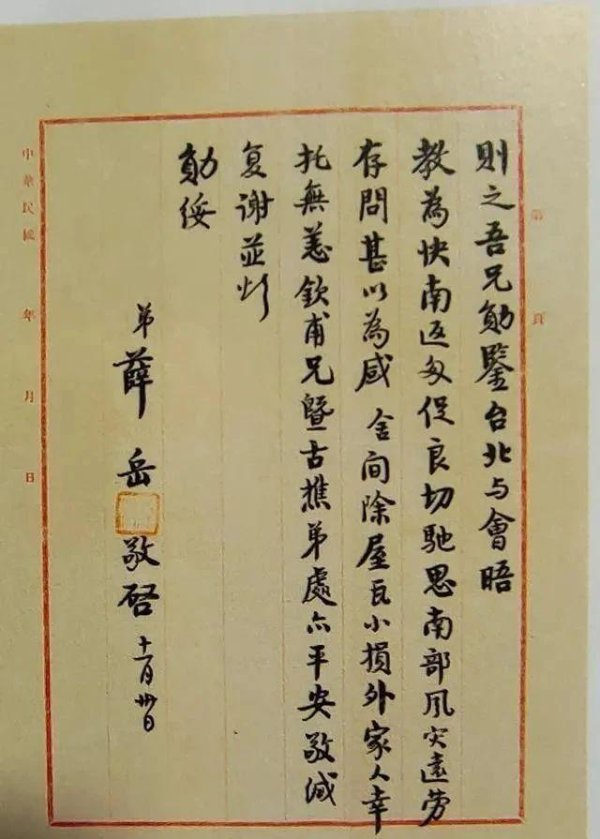 第 頁
則之吾兄勛鑒台北与會晤
教為快南返匆促良切馳思南部風災遠劳
存問甚以為感舍间除屋瓦小損外家人幸
托無恙欽甫兄暨古樵弟處亦平安敬緘
复谢並頌
勛绥
弟薛岳敬啓十一月卅日
中華民國 年 月 日